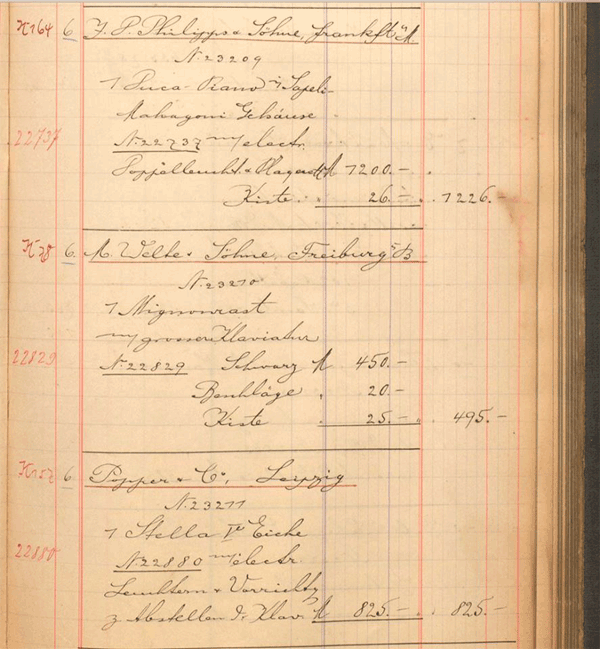 K 164 6. J. P. Philipps & Söhne, Frankft a/M
N. 23209
1 Puca-Piano in Sapeli-
Mahagoni Gehäuse
22737 N. 22737 m/ electr.
M 1200.–
Kiste . 26.– . . 1226.–
K 38 6. M. Welte & Söhne, Freiburg i/B
N. 23210
1 Mignonvorst
m/ grosser Klaviatur
22829 N. 22829 Schwarz M 450.–
Beschläge . 20.–
Kiste . 25.– . 495.–
K 152 6. Popper & Co., Leipzig
N. 23211
1 Stella Eiche
22880 N. 22880 m/ electr.
Leuchtern & Vorrichtg
z. Abstellen d. Klav. M 825.– . . 825.–